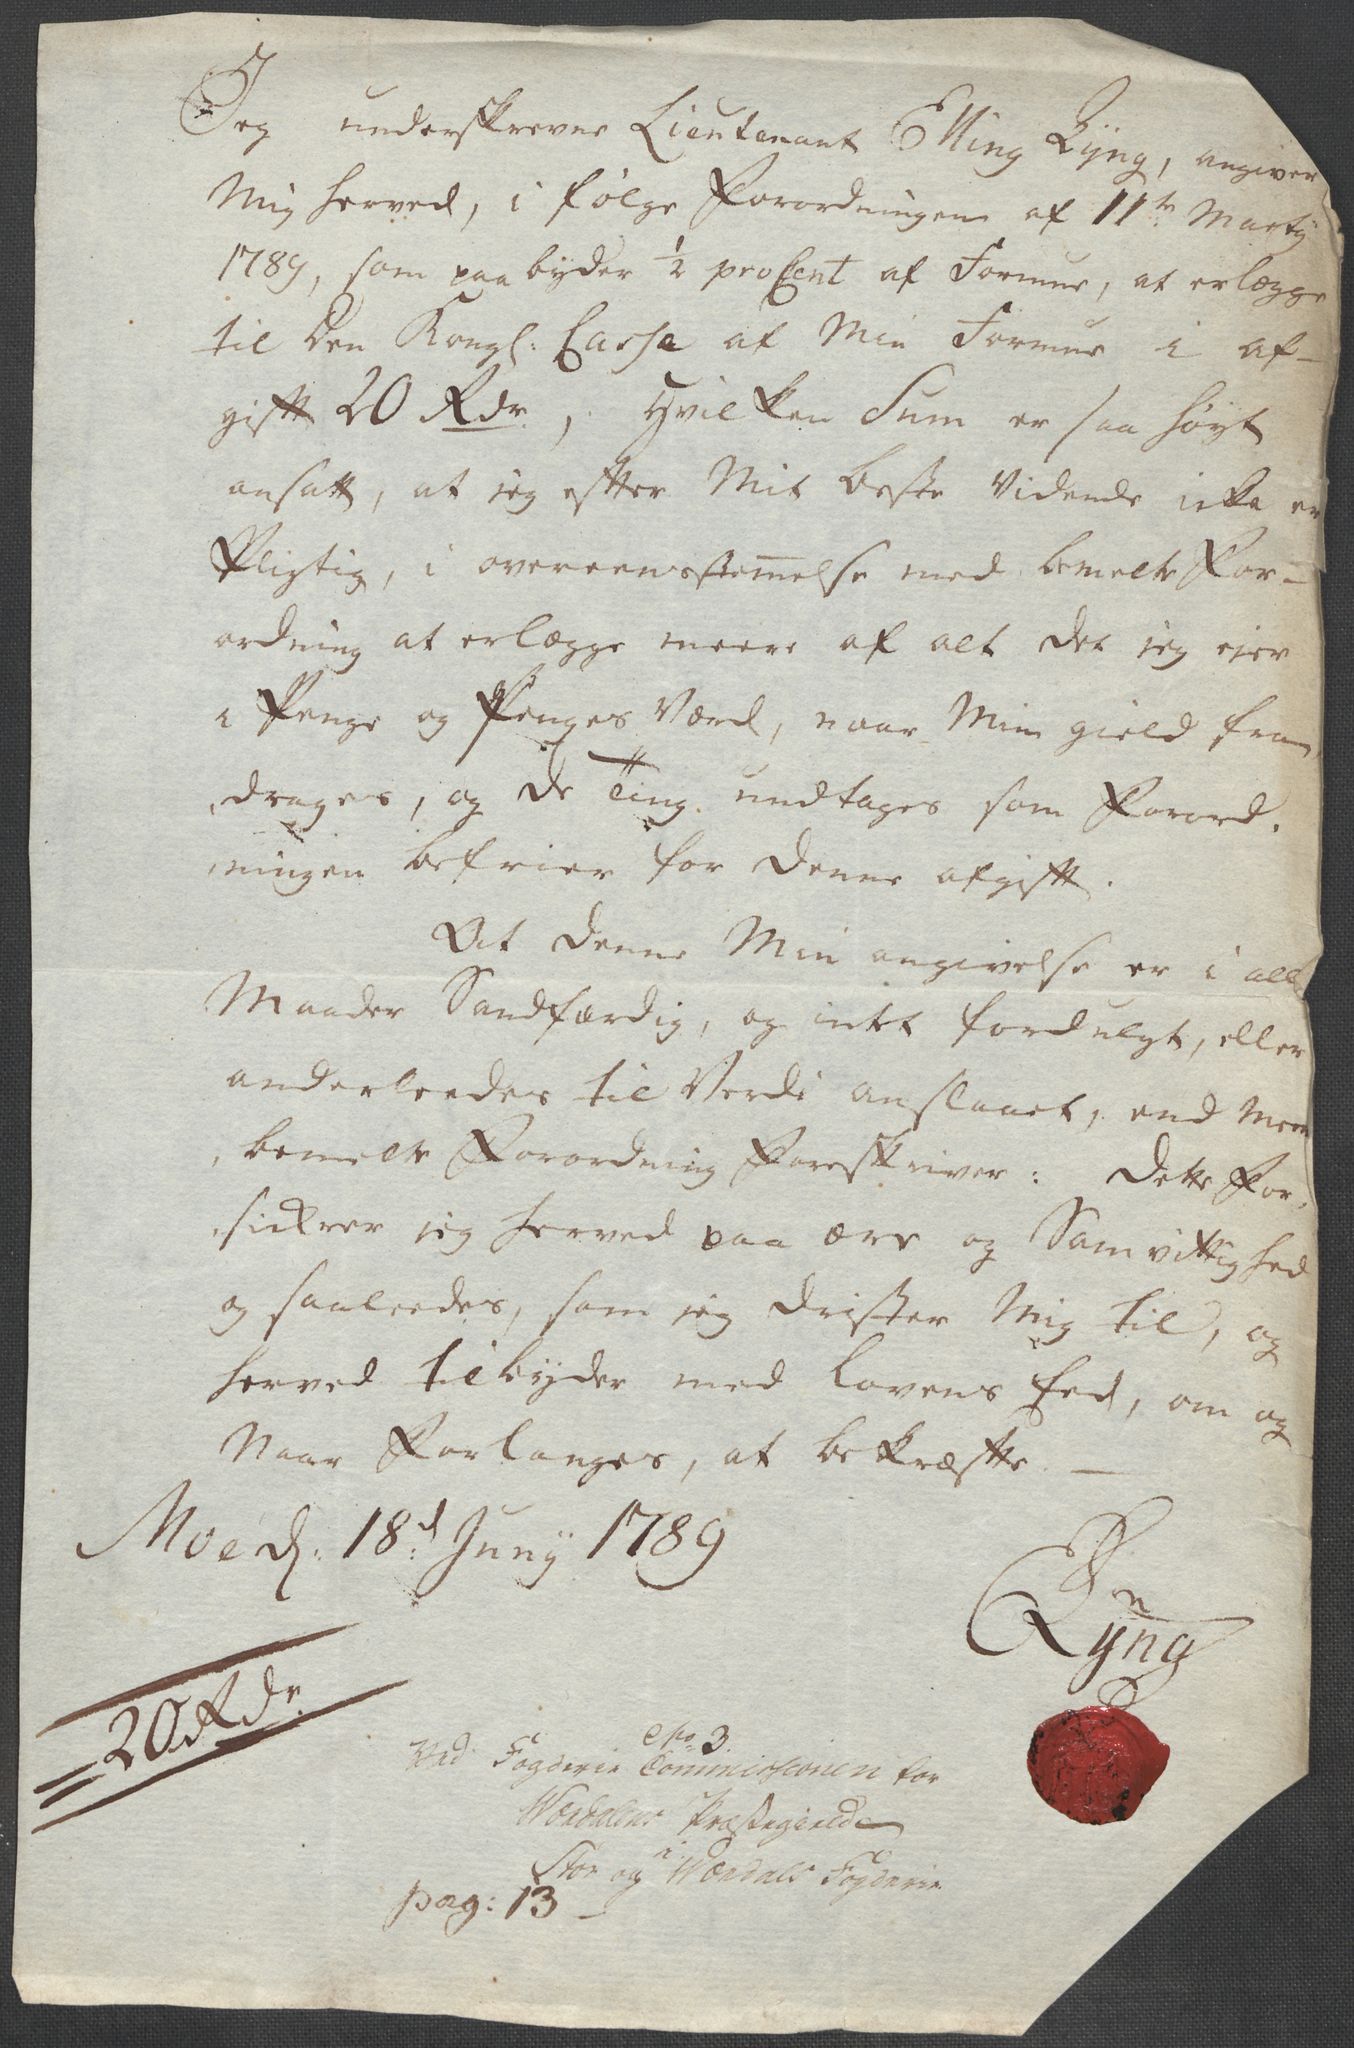 Jeg underskrevne Lieutenant Elling Lÿng, angiver
Mig herved, i følge Forordningen af 11te Martÿ
1789, som paabÿder 1/2 proCent af Formue, at erlægge
til den Kongl: Cassa af Min Formue i af-
gift 20 Rdr, Hvilken Sum er saa høÿt
ansatt, at jeg efter Mit beste Vidende icke er
Pligtig, i overeensstem̅else med bemelte For-
ordning at erlægge meere af alt det jeg ejer
i Penge og Penges Værd, naar Min gield fra-
drages, og de Ting undtages som Forord-
ningen befrier for denne afgift.
At denne Min angivelse er i alle
Maader Sandfærdig, og intet fordulgt, eller
anderleedes til Verdi anslaaet, end Meer-
bemelte Forordning Foreskriver: dette For-
sickrer jeg herved paa ære og Samvittighed
og saaleedes, som jeg drister Mig til, og
herved tilbÿder med Lovens Eed, om og
Naar Forlanges, at bekræfte. —
Moe d: 18d Junÿ 1789
E Lÿng
20 Rdr
No 3
Ved Fogderie Commissionen for
Værdalens Præstegield
i
Stør og Værdals Fogderie
pag: 13 –